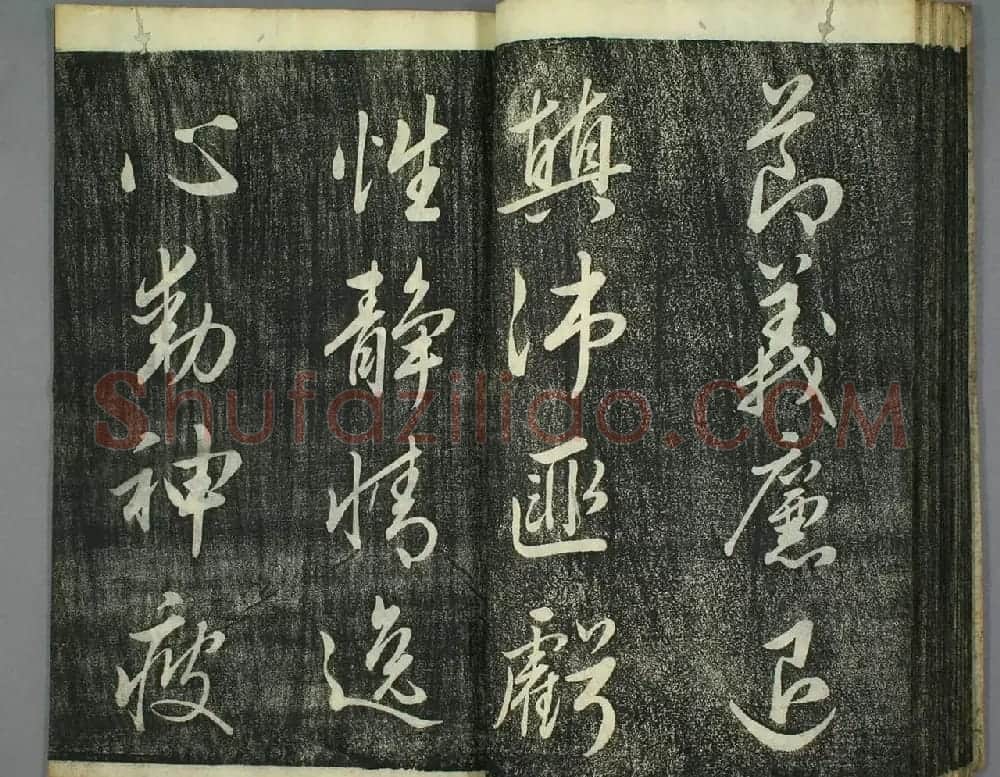 節義廉退
顛沛匪虧
性靜情逸
心動神疲
Shufaziliao.COM